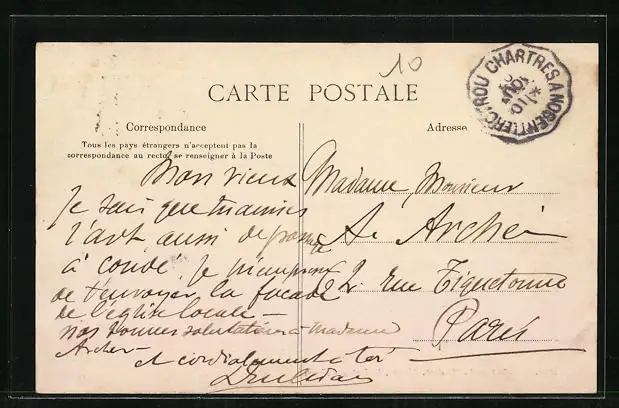 10
CARTE POSTALE
CHARTRES A NOGENT LE ROTROU
Correspondance
Tous les pays étrangers n'acceptent pas la
correspondance au recto, se renseigner à la Poste
Mon vieux
Je sais que tu aimes
l'art aussi de passage
à Condé, je m'empresse
de t'envoyer la façade
de l'église locale —
nos bonnes salutations à Madame
Archer et cordialement à toi
Adresse
Madame, Monsieur
A. Archer
22 rue Tiquetonne
Paris